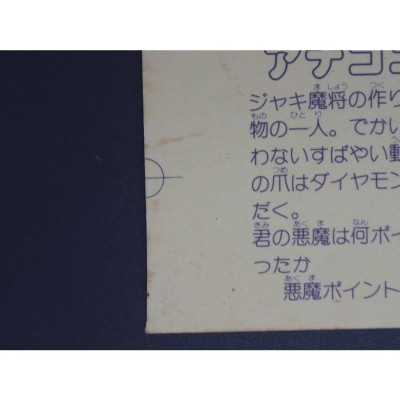 アテゴ
ジャキ魔将の作り
物の一人。でかい
わないすばやい動
の爪はダイヤモン
だく。
君の悪魔は何ポイ
ったか
悪魔ポイント